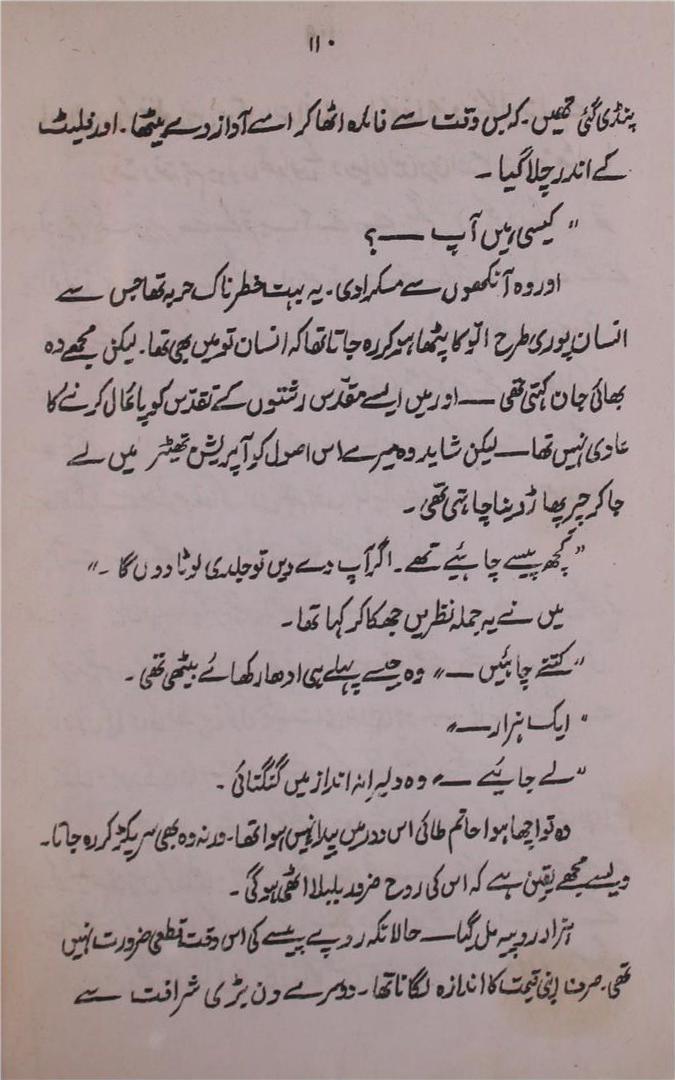 ۱۱۰
پنڈی گئی تھیں۔ کہ بس وقت سے فائدہ اٹھا کر اسے آواز دے بیٹھا۔ اور فلیٹ
کے اندر چلا گیا۔
" کیسی ہیں آپ ——؟
اور وہ آنکھوں سے مسکرا دی۔ یہ بہت خطرناک حربہ تھا جس سے
انسان پوری طرح الّو کا پٹھا ہو کر رہ جاتا تھا کہ انسان تو میں بھی تھا۔ لیکن مجھے وہ
بھائی جان کہتی تھی —— اور میں ایسے مقدّس رشتوں کے تقدّس کو پائمال کرنے کا
عادی نہیں تھا —— لیکن شاید وہ میرے اس اصول کو آپریشن تھیٹر میں لے
جا کر چیر پھاڑ دینا چاہتی تھی۔
" کچھ پیسے چاہیئے تھے۔ اگر آپ دے دیں تو جلدی لوٹا دوں گا۔"
میں نے یہ جملہ نظریں جھکا کر کہا تھا۔
" کتنے چاہئیں ——" وہ جیسے پہلے ہی ادھار کھائے بیٹھی تھی۔
" ایک ہزار ——"
" لے جایئے ——" وہ دلیرانہ انداز میں گنگنائی۔
وہ تو اچھا ہوا حاتم طائی اس دور میں پیدا نہیں ہوا تھا۔ ورنہ وہ بھی سر پکڑ کر رہ جاتا۔
ویسے مجھے یقین ہے کہ اس کی روح ضرور بلبلا اٹھی ہو گی۔
ہزار روپیہ مل گیا —— حالانکہ روپے پیسے کی اس وقت قطعی ضرورت نہیں
تھی۔ صرف اپنی قیمت کا اندازہ لگانا تھا۔ دوسرے دن بڑی شرافت سے